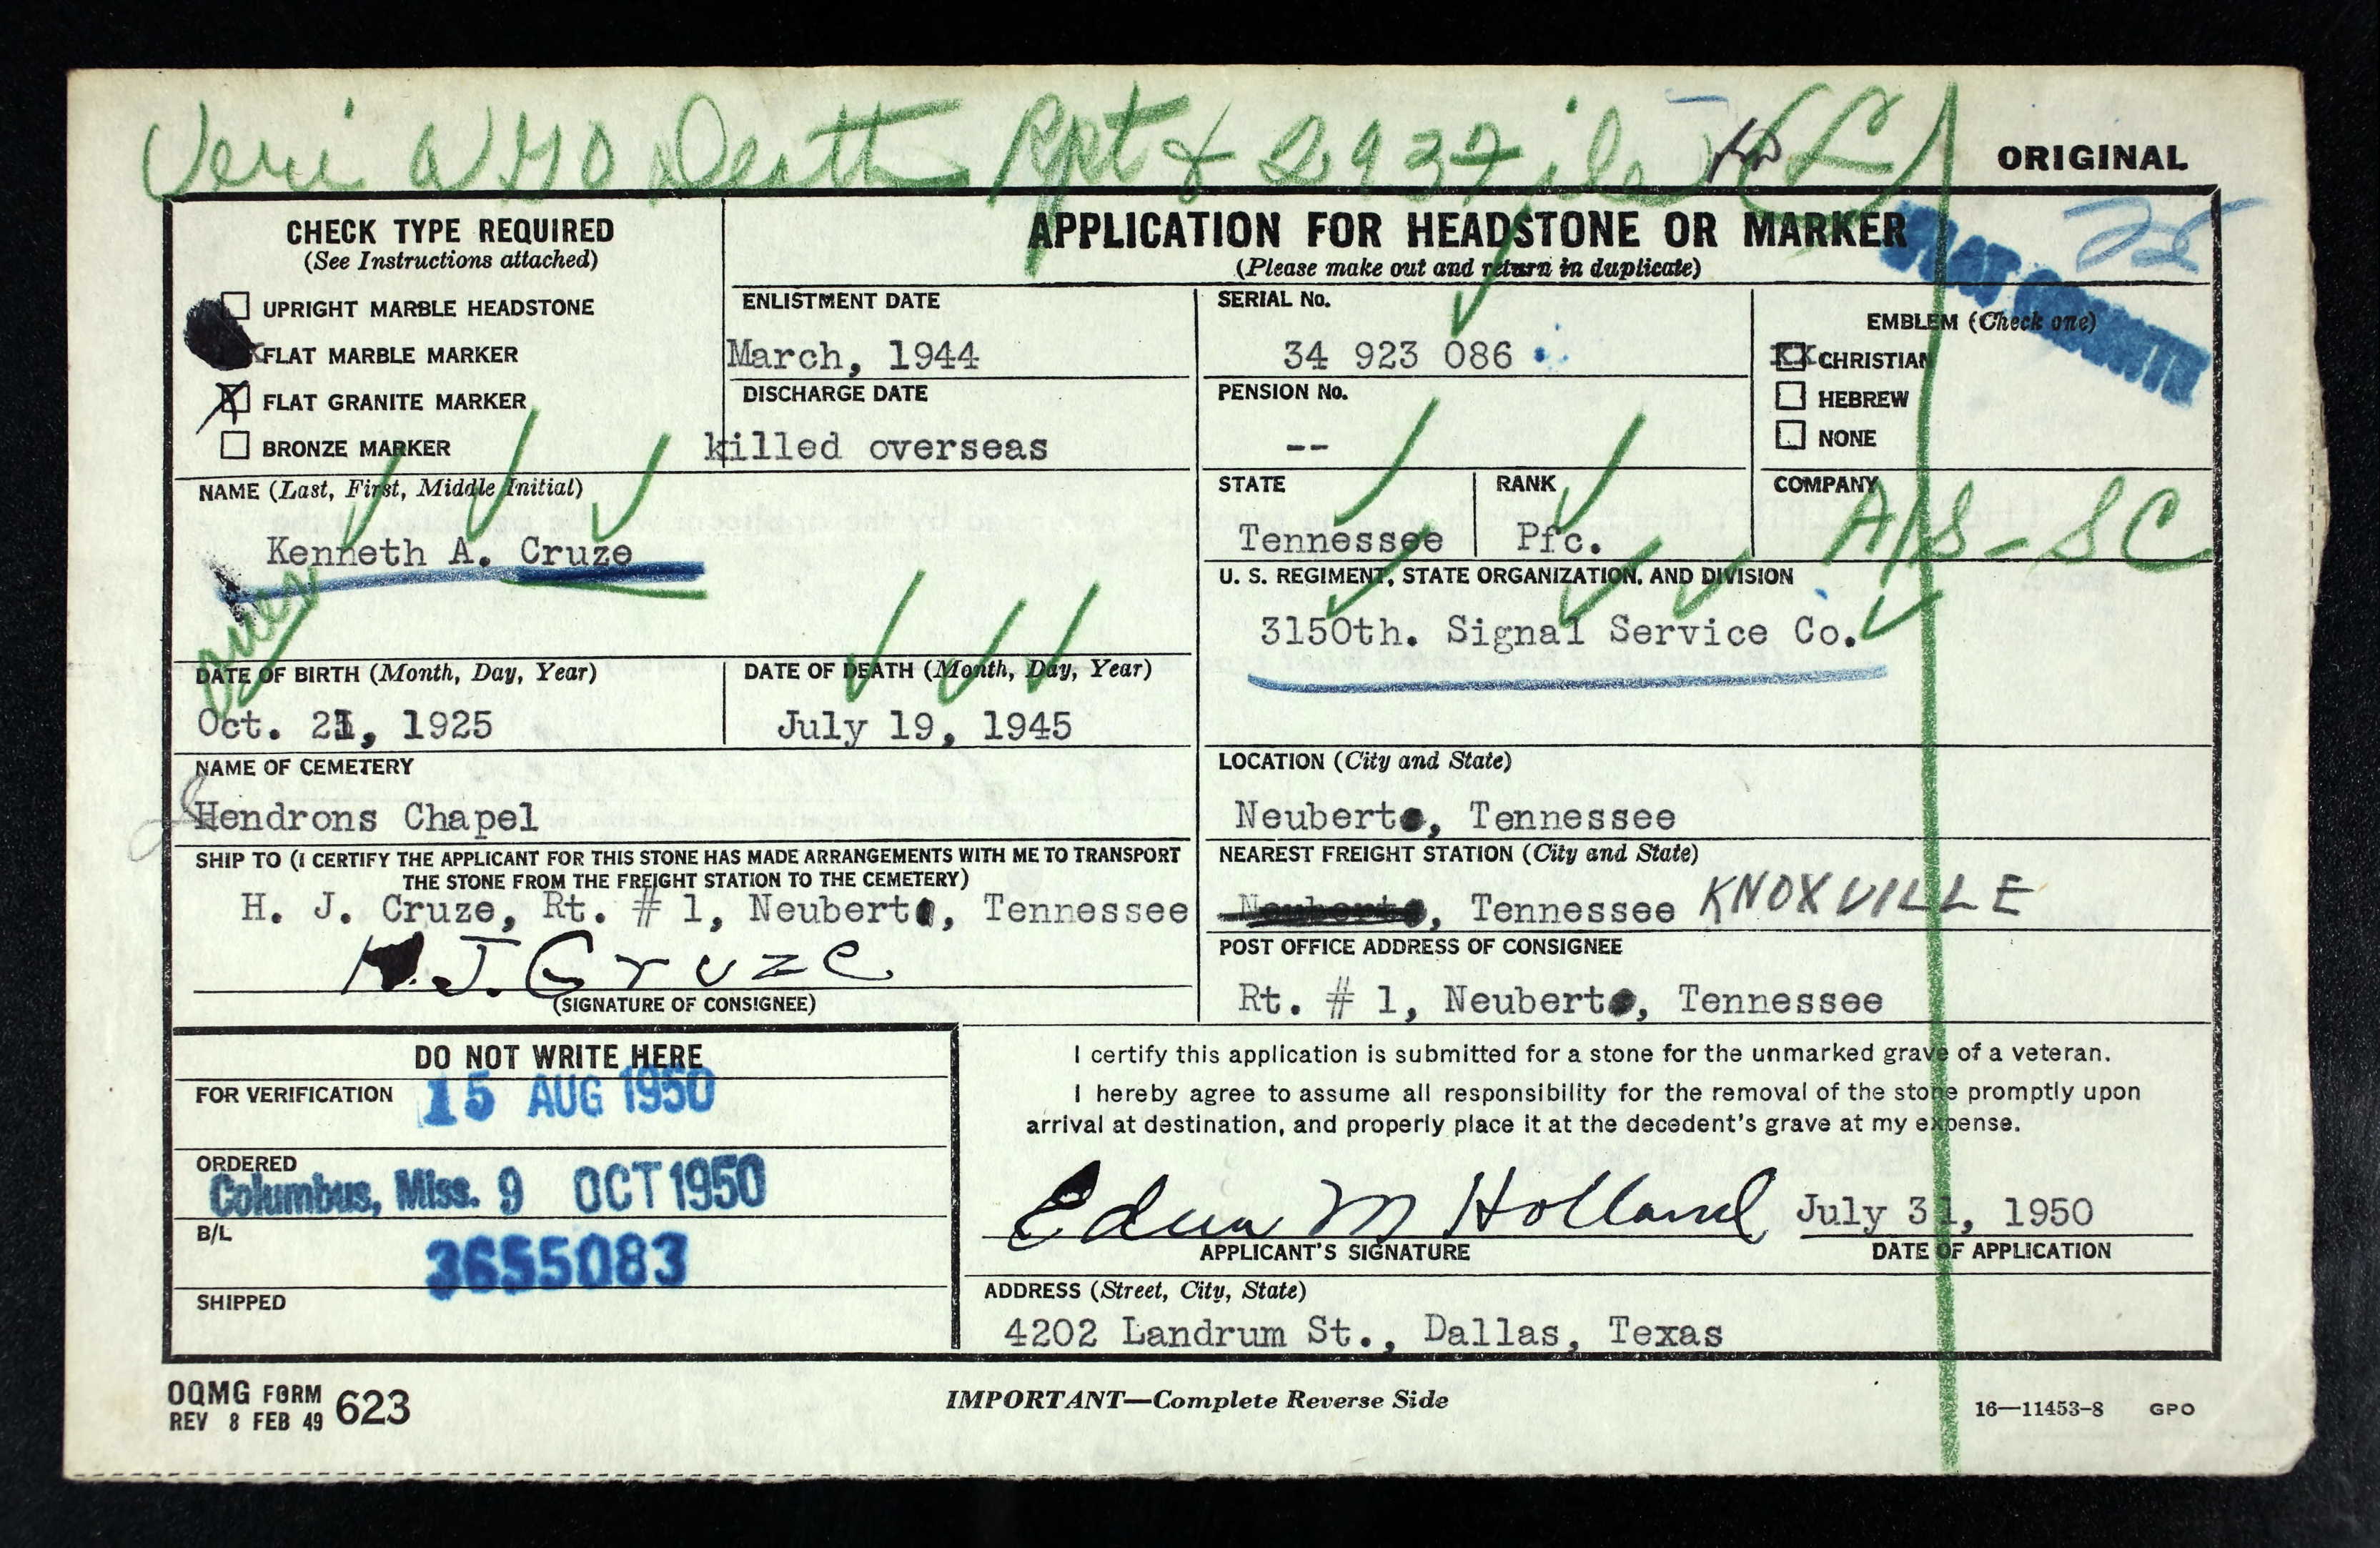 Veri WWO Death Rpt & 293 File
ORIGINAL
CHECK TYPE REQUIRED
(See Instructions attached)
UPRIGHT MARBLE HEADSTONE
FLAT MARBLE MARKER
X FLAT GRANITE MARKER
BRONZE MARKER
APPLICATION FOR HEADSTONE OR MARKER
(Please make out and return in duplicate)
FLAT GRANITE
ENLISTMENT DATE
March, 1944
DISCHARGE DATE
killed overseas
SERIAL No.
34 923 086
PENSION No.
--
EMBLEM (Check one)
XX CHRISTIAN
HEBREW
NONE
NAME (Last, First, Middle Initial)
Kenneth A. Cruze
STATE
Tennessee
RANK
Pfc.
COMPANY
A/S-SC
U. S. REGIMENT, STATE ORGANIZATION, AND DIVISION
3150th. Signal Service Co.
DATE OF BIRTH (Month, Day, Year)
Oct. 21, 1925
DATE OF DEATH (Month, Day, Year)
July 19, 1945
NAME OF CEMETERY
Hendrons Chapel
LOCATION (City and State)
Neubert, Tennessee
SHIP TO (I CERTIFY THE APPLICANT FOR THIS STONE HAS MADE ARRANGEMENTS WITH ME TO TRANSPORT
THE STONE FROM THE FREIGHT STATION TO THE CEMETERY)
H. J. Cruze, Rt. # 1, Neubert, Tennessee
H.J. Cruze
(SIGNATURE OF CONSIGNEE)
NEAREST FREIGHT STATION (City and State)
Neuberts, Tennessee KNOXVILLE
POST OFFICE ADDRESS OF CONSIGNEE
Rt. # 1, Neubert, Tennessee
DO NOT WRITE HERE
FOR VERIFICATION 15 AUG 1950
ORDERED
Columbus, Miss. 9 OCT 1950
B/L
3655083
SHIPPED
I certify this application is submitted for a stone for the unmarked grave of a veteran.
I hereby agree to assume all responsibility for the removal of the stone promptly upon
arrival at destination, and properly place it at the decedent's grave at my expense.
Edna M Holland July 31, 1950
APPLICANT'S SIGNATURE DATE OF APPLICATION
ADDRESS (Street, City, State)
4202 Landrum St., Dallas, Texas
OQMG FORM 623
REV 8 FEB 49
IMPORTANT—Complete Reverse Side
16—11453-8 GPO